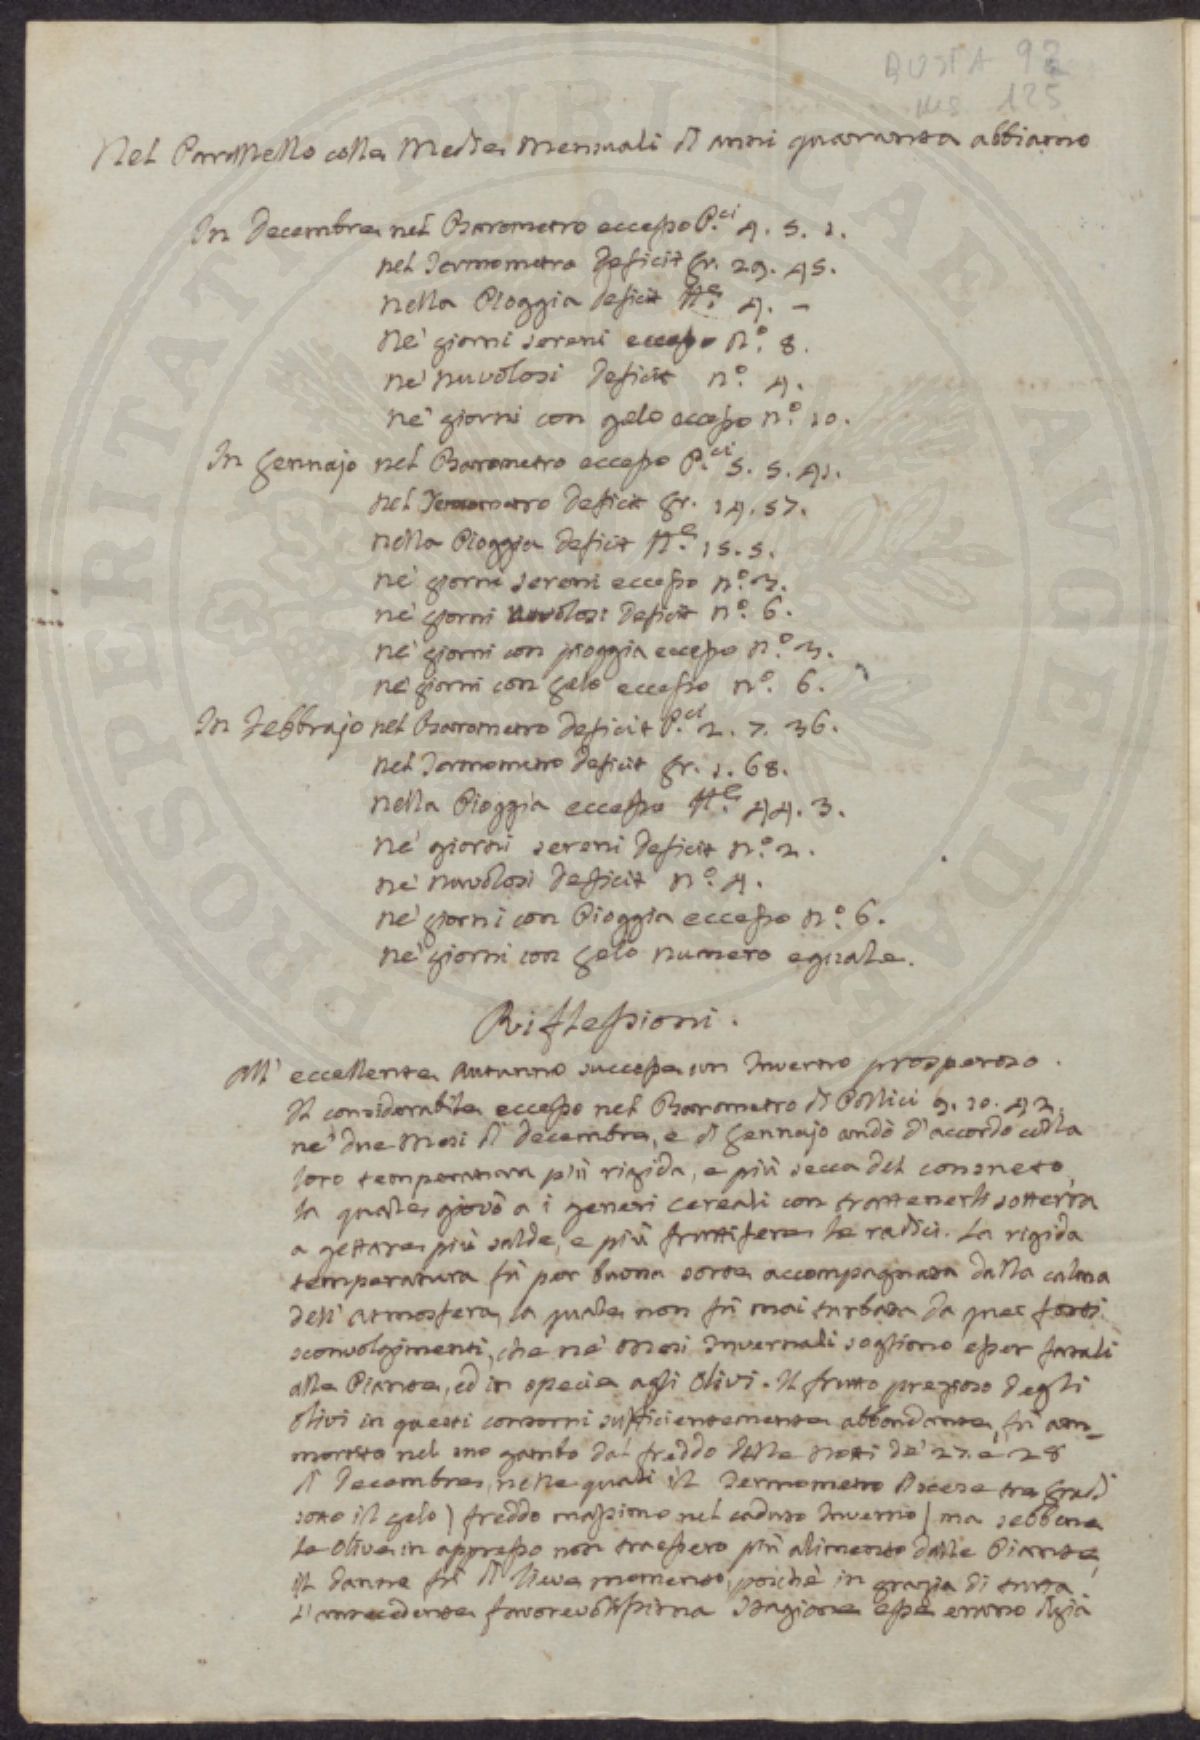 BUSTA 92
ms 125
Nel Parallello colle Medie Mensuali di anni quaranta abbiamo
In Decembre nel Barometro eccesso P.ci 4. 5. 1.
nel Termometro deficit gr. 29. 45.
nella Pioggia deficit 4. –
ne' giorni sereni eccesso n.o 8.
ne' nuvolosi deficit n.o 4.
ne' giorni con gelo eccesso n.o 10.
In Gennajo nel Barometro eccesso P.ci 5. 5. 41.
nel Termometro deficit gr. 14. 57.
nella Pioggia deficit 15. 5.
ne' giorni sereni eccesso n.o 3.
ne' giorni nuvolosi deficit n.o 6.
ne' giorni con pioggia eccesso n.o 3.
ne' giorni con gelo eccesso n.o 6.
In Febbrajo nel Barometro deficit P.ci 2. 7. 36.
nel Termometro deficit gr. 1. 68.
nella Pioggia eccesso 44. 3.
ne' giorni sereni deficit n.o 2.
ne' nuvolosi deficit n.o 4.
ne' giorni con Pioggia eccesso n.o 6.
ne' giorni con gelo numero eguale.
Riflessioni.
All' eccellente Autunno successe un Inverno prosperoso.
Il considerabile eccesso nel Barometro di Pollici 9. 10. 42.
ne' due Mesi di Decembre, e di Gennajo andò d'accordo colla
loro temperatura più rigida, e più secca del consueto,
la quale giovò a i generi Cereali con trattenerli sotterra
a gettare più salde, e più fruttifere le radici. La rigida
temperatura fù per buona sorte accompagnata dalla calma
dell' Atmosfera, la quale non fù mai turbata da que' forti
sconvolgimenti, che ne' Mesi Invernali sogliono esser fatali
alle Piante, ed in specie agli Olivi. Il frutto prezioso degli
Olivi in questi contorni sufficientemente abbondante, fù am-
mortito nel suo gambo dal freddo delle Notti de' 27. e 28
di Decembre, nelle quali il Termometro discese tre Gradi
sotto il gelo) freddo massimo nel caduto Inverno) ma sebbene
le Olive in appresso non traessero più alimento dalle Piante,
il danno fù di lieve momento, poichè in grazia di tutta
l'antecedente favorevolissima Stagione esse erano digià
PROSPERITATI PUBLICAE AUGENDAE